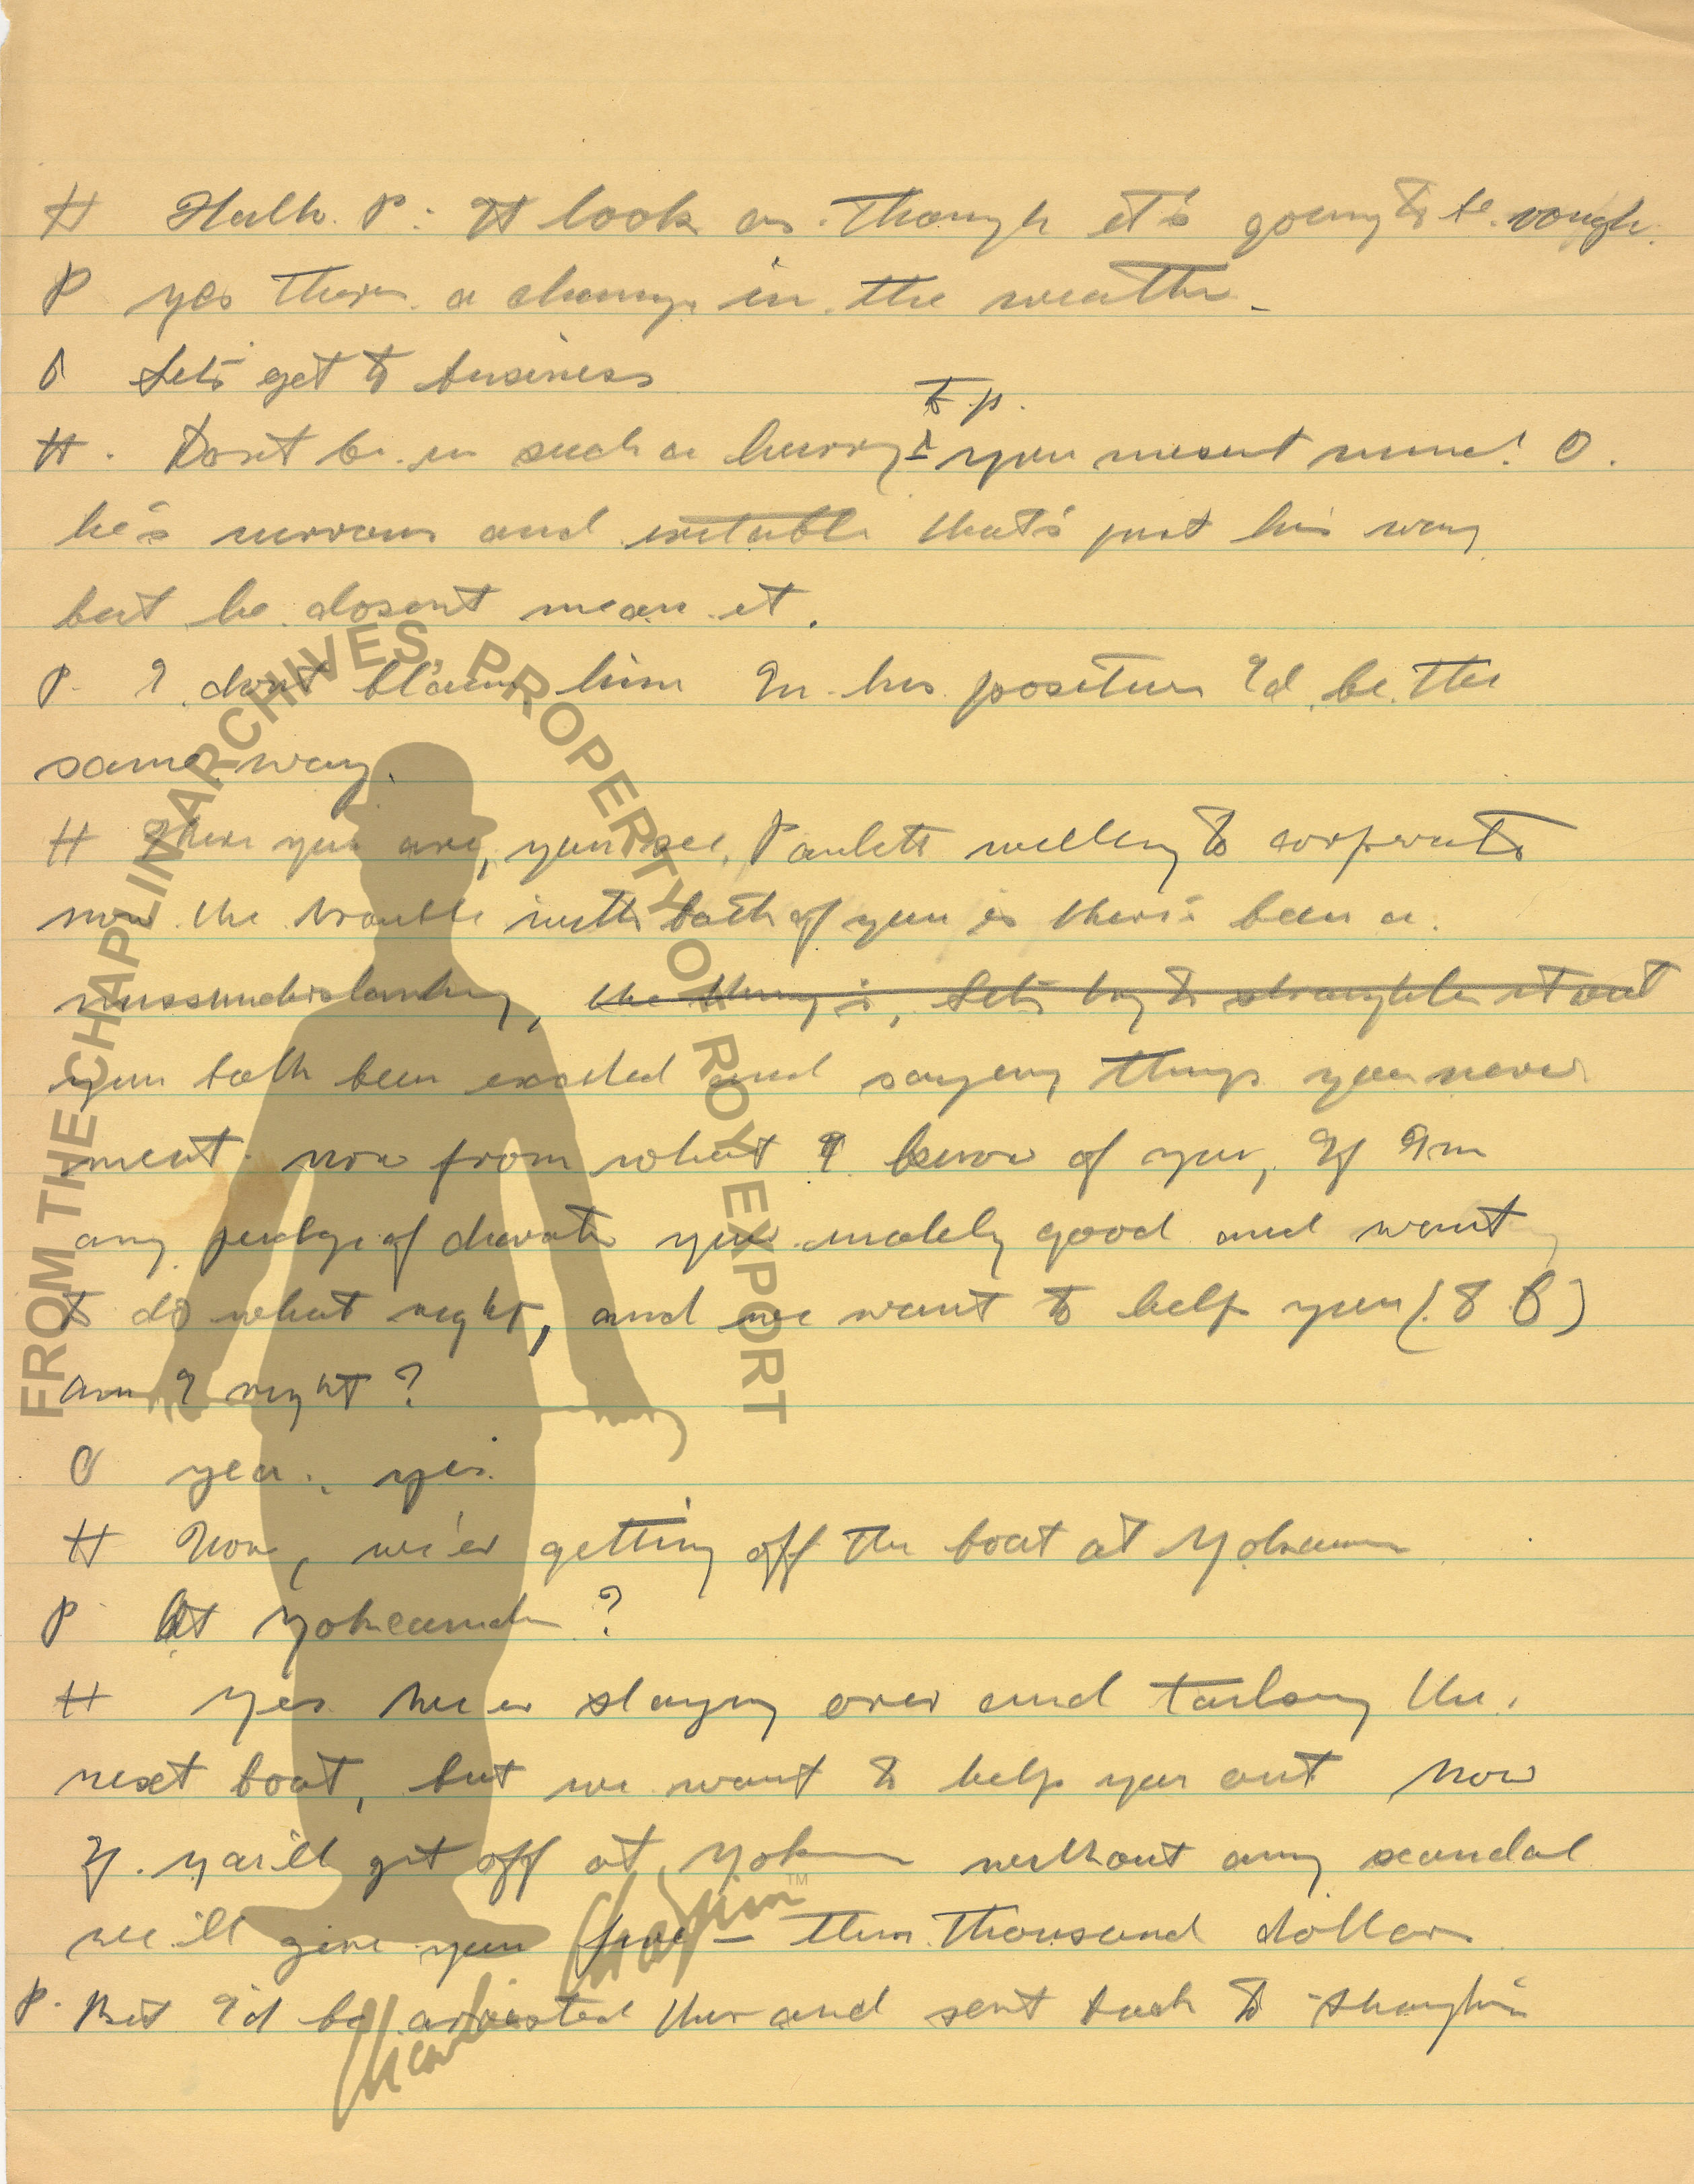 H Hallo. P. It look as though it's going to be rough.
P yes theres a change in the weather -
O Let's get to business
to p.
H. Don't be in such a hurry - you musnt mind O.
he's nervous and iritable that's just his way
but he dosent mean it.
P. I dont blame him In his position I'd be the
same way.
H There you are, you see, Paulette willing to
now the trouble with both of you is there's been a
, the thing is, let's try to straighten it out
you both been excited and saying things you never
ment. now from what I know of you, If I'm
any judge of you good and want
to do what right, and we want to help you (to O)
am I right?
O yea. yes.
H Now, we'er getting off the boat at
P At ?
H Yes we er staying over and taking the
next boat, but we want to help you out now
If you'll get off at without any scandal
we'll give you five - thousand dollars
P. But I'd be arrested ther and sent back to
FROM THE CHAPLIN ARCHIVES, PROPERTY OF ROY EXPORT
Charlie Chaplin™